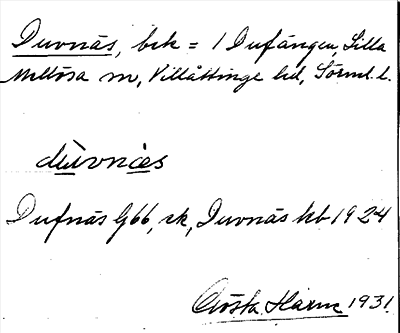 Duvnäs, bsk = 1 Dufången, Lilla
Mellösa sn, Villåttinge hd, Sörml. l.
dùvnäs
Dufnäs G66, sk, Duvnäs kb 1924
Gösta Harne 1931.